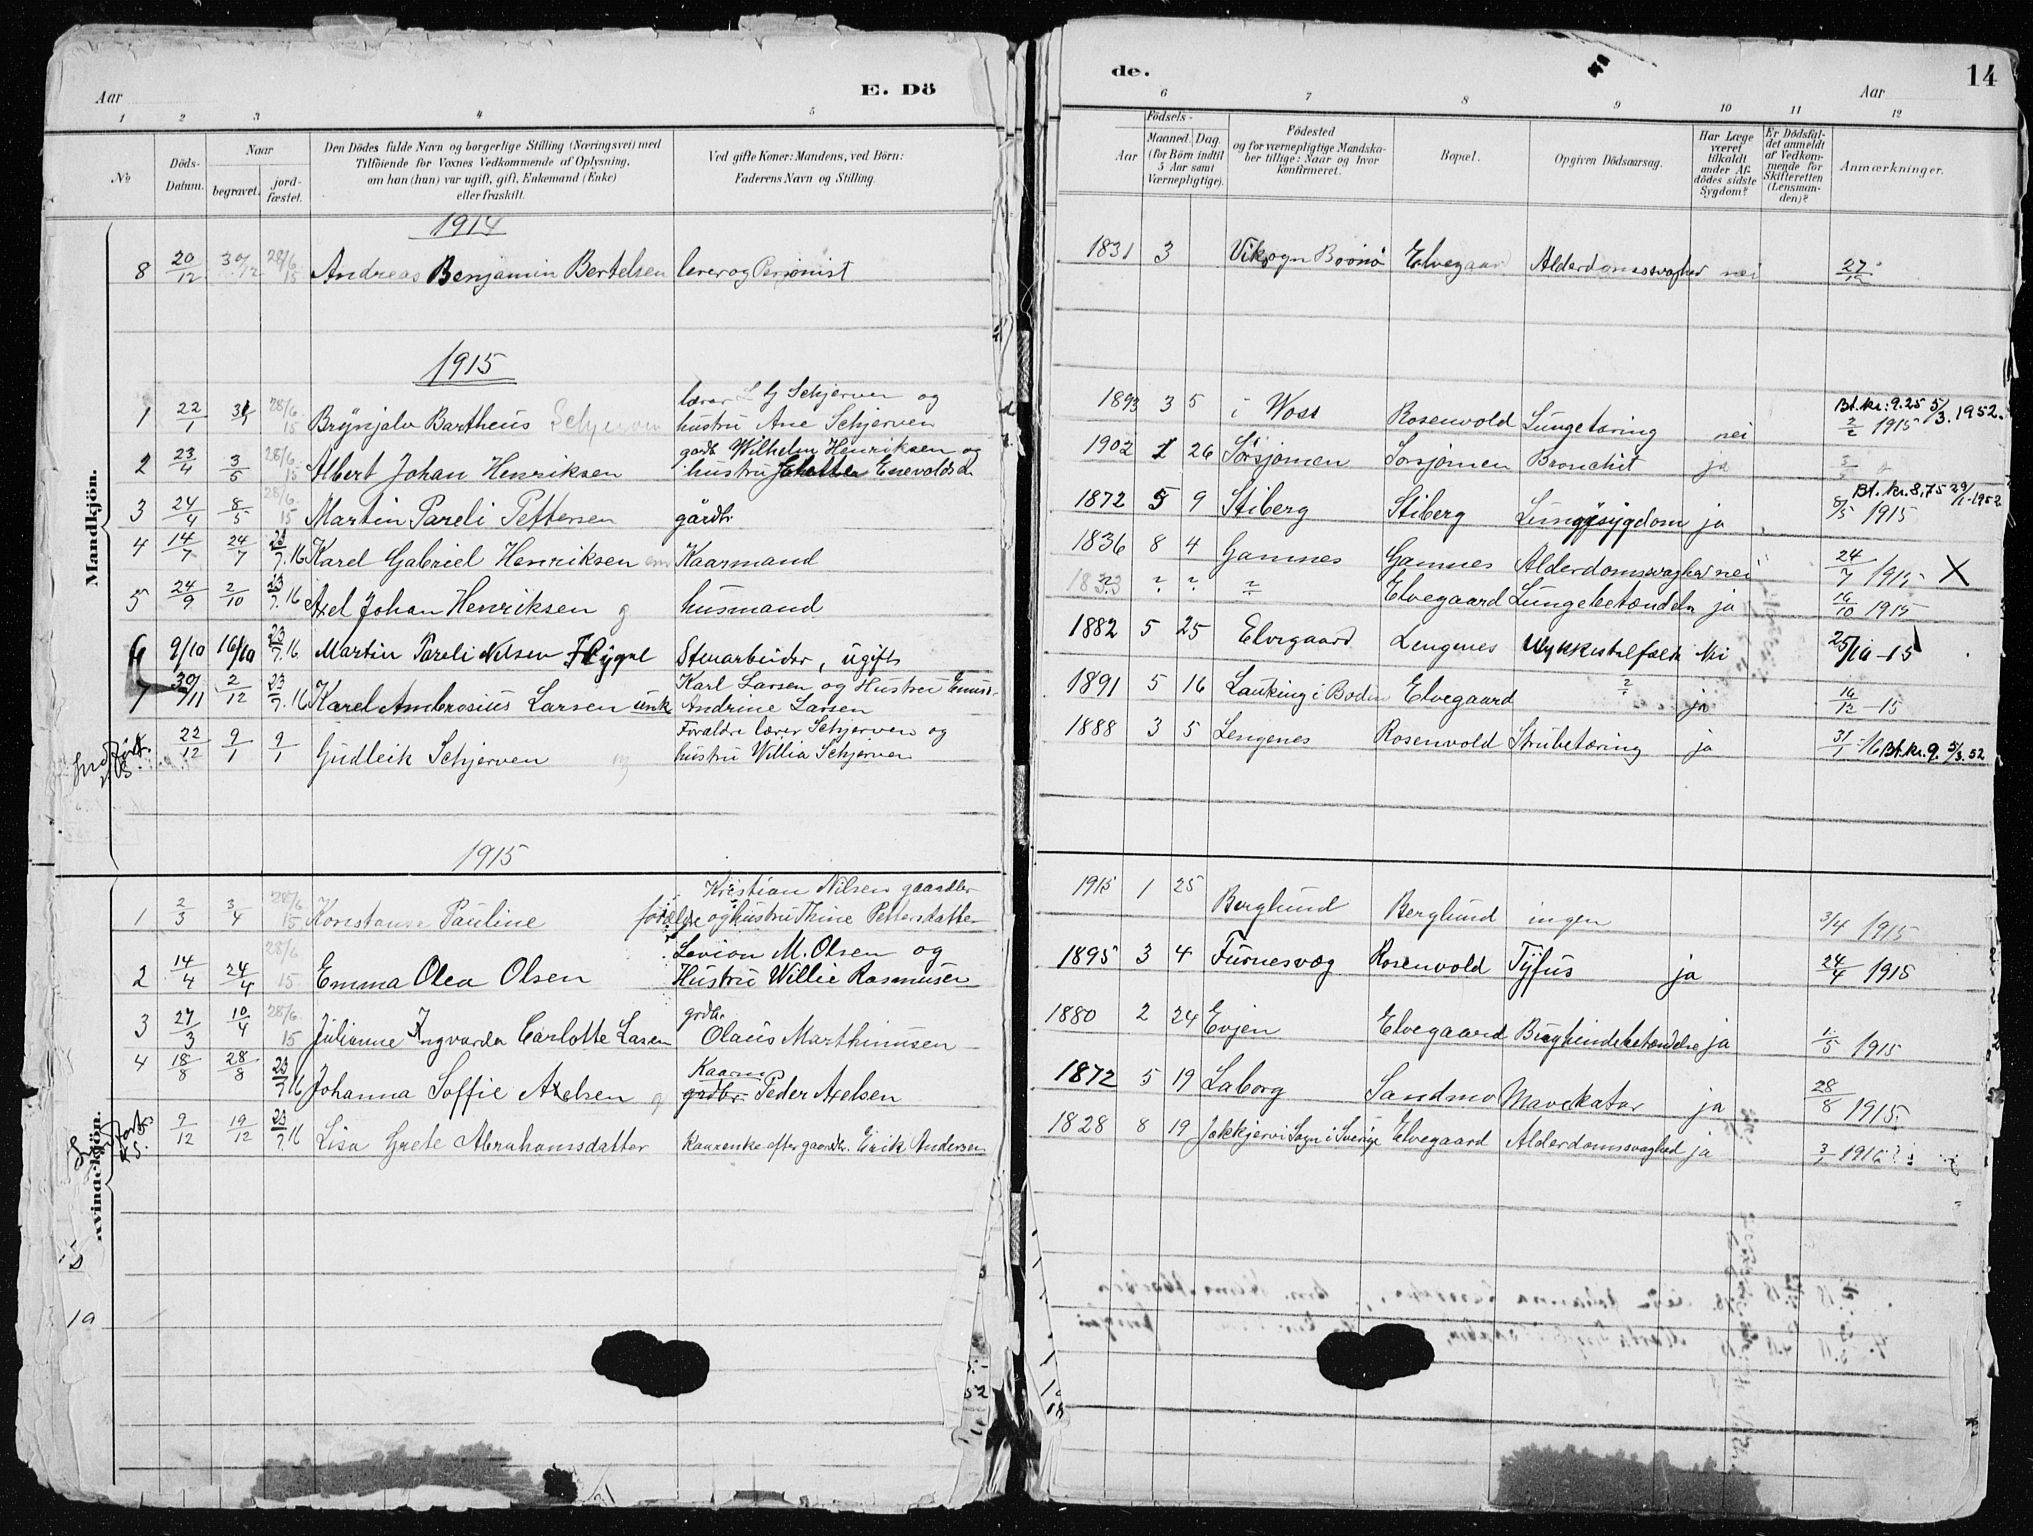 Aar E. Dö
de. Aar 14
1 2 3 4 5
6 7 8 9 10 11 12
№ Döds-Datum. Naar begravet. jord-fæstet. Den Dödes fulde Navn og borgerlige Stilling (Næringsvei) med Tilföiende for Voxnes Vedkommende af Oplysning, om han (hun) var ugift, gift, Enkemand (Enke) eller fraskilt. Ved gifte Koner: Mandens, ved Börn: Faderens Navn og Stilling.
Födsels- Aar Maaned. Dag. (for Börn indtil 5 Aar samt Værnepligtige). Födested og for værnepligtige Mandska-ber tillige: Naar og hvor konfirmeret. Bopæl. Opgiven Dödsaarsag. Har Læge været tilkaldt under Af-dödes sidste Sygdom? Er Dödsfal-det anmeldt af Vedkom-mende for Skifteretten (Lensman-den)? Anmærkninger.
Mandkjön.
1914
8 20/12 30/12 28/6 15 Andreas Benjamin Bertelsen lærer og Pensionist 1831 3 Viksogn Brønø Elvegaar Alderdomssvaghed nei 27/12
1915
lærer L G Schjerven og
1 22/1 31/1 28/6 15 Brynjolv Bartheus Schjerven hustru Ane Schjerven 1893 3 5 i Woss Rosenvold Lungetæring nei 2/2 1915 Bt. kr: 9.25 5/3. 1952.
gardb Wilhelm Henriksen og
2 23/4 3/5 28/6 15 Albert Johan Henriksen hustru Enevoldsd 1902 1 26 Sørsjomen Sørsjomen Bronchit ja
3 24/4 8/5 28/6 15 Martin Pareli Pettersen gårdb 1872 5 9 Stiberg Stiberg Lungesygdom ja 8/5 1915 Bt. kr. 8,75 29/1-1952
4 14/7 24/7 23/7.16 Karel Gabriel Henriksen em Kaarmand 1836 8 4 Gamnes Gamnes Alderdomssvaghed nei 24/7 1915 X
5 24/9 2/10 23/7.16 Axel Johan Henriksen g husmand 1833 ? ? ? Elvegaard Lungebetændelse ja 16/10 1915
6 9/10 16/10 23/7.16 Martin Pareli Nilsen Flygel Stenarbeider, ugift 1882 5 25 Elvegaard Lengenes Ulykkestilfælde Nei 25/10-15
Karl Larsen og Hustru
7 30/11 2/12 23/7.16 Karel Ambrosius Larsen unk Andrine Larsen 1891 5 16 Lauking i Bodin Elvegaard ? ja 16/12-15
Foraldre lærer Schjerven og
Indført 22/12 9/1 9/1 Gudleik Schjerven hustru Willia Schjerven 1888 3 5 Lengenes Rosenvold Strubetæring ja 31/1 16 Bt. kr. 9. 5/3. 52
1915
Kvindekjön.
Kristian Nilsen gaardbr
1 2/3 3/4 28/6 15 Konstanse Pauline forældre og hustru Trine Pettersdatter 1915 1 25 Berglund Berglund ingen 3/4 1915
Levion M. Olsen og
2 14/4 24/4 28/6 15 Emma Olea Olsen Hustru Willie Rasmusen 1895 3 4 Furnesvæg Rosenvold Tyfus ja 24/4 1915
grdbr.
3 27/3 10/4 28/6 15 Julianne Ingvarda Carlotte Lasen Olaus Marthinusen 1880 2 24 Evjen Elvegaard Bughindebetændelse ja 1/5 1915
Kaarm
4 18/8 28/8 23/7.16 Johanna Soffie Axelsen g grdbr. Peder Axelsen 1872 5 19 Laborg Sandmo Mavekatar ja 28/8 1915.
9/12 19/12 23/7.16 Lisa Grete Abrahamsdatter Kaarenke efter gaardbr. Erik Andersen 1828 8 19 Jokkjervi Sogn i Sverige Elvegaard Alderdomssvaghed ja 3/1 1916